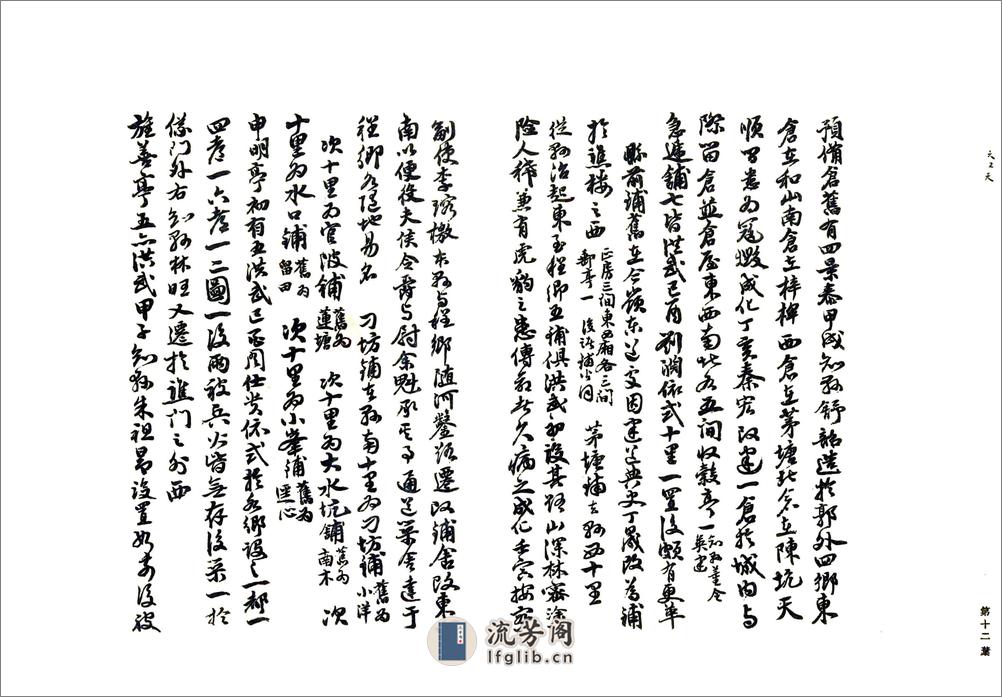 天上天
第十二葉
預備倉舊有四景泰甲戌知縣舒韶造於郭外四鄉東
倉在和山南倉在梓樟西倉在茅塘北倉在陳坑天
順間悉為寇燬成化丁亥秦宏改建一倉於城內与
際留倉並倉屋東西南北各五間收穀亭一知縣董令英建
急遞鋪七皆洪武己酉刘潤依式十里一置後頗有更革
縣前鋪舊在今嶺东道處因建道典史丁晟改為鋪
於譙樓之西正房三間東西廂各三間郵亭一後諸鋪皆同 茅塘鋪去縣西十里
從縣治起東至程鄉五鋪俱洪武初設其路山深林密途
險人稀兼有虎豹之患傳命者久病之成化壬寅按察
副使李珍檄本縣与程鄉随河鑿路遷改鋪舍改東
南以便役夫侯令爵与尉余魁承其事通道築舍達于
程鄉各隨地易名 刁坊鋪在縣南十里為刁坊鋪舊為小洋
次十里為官陂鋪舊為蓮塘 次十里為大水坑鋪舊為南木 次
十里为水口鋪舊為留田 次十里為小峯鋪舊為匡心
申明亭初有五洪武己酉周仕貴依式於各鄉設之一都一
四者一六者一二圖一後兩被兵火皆無存後築一於
儀門外右知縣林旺又遷於譙門之外西
旌善亭五亦洪武甲子知縣朱祖昂設置如前後被
流芳阁
lfglib.cn